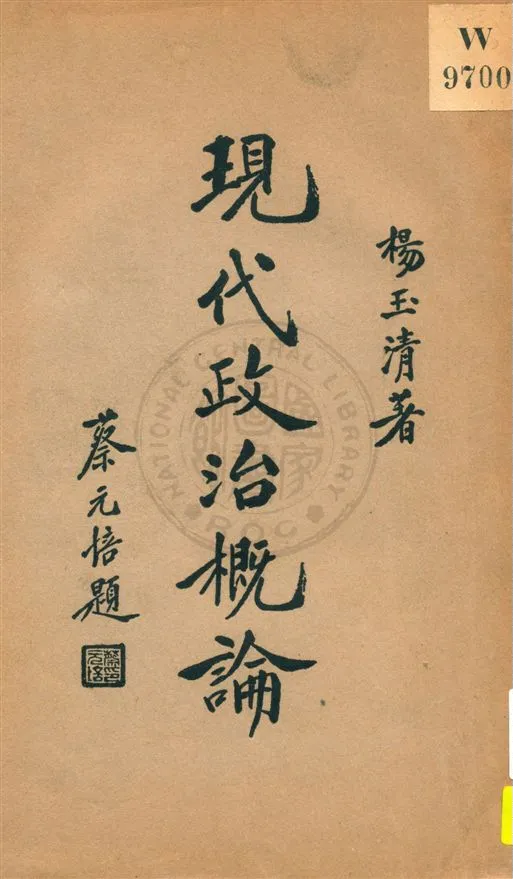 楊玉清著
現代政治概論
蔡元培題
蔡元培
W
9700
NATIONAL CENTRAL LIBRARY
ROC
國家